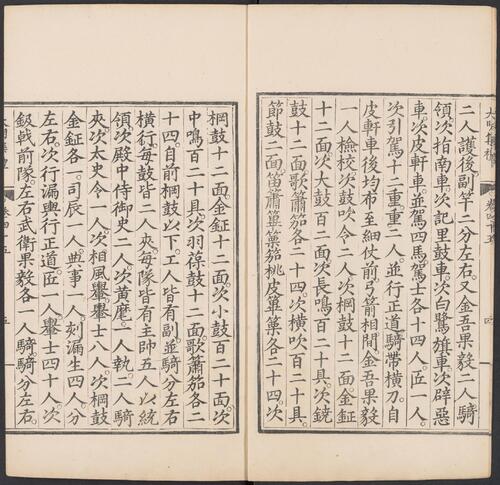 二人護後副竿二分左右又金吾果毅二人騎
領次指南車次記里鼓車次白鷺車次辟惡
車次皮軒車並駕四馬駕士各十四人匠一人
次引駕十二重重二人並行正道騎帶橫刀自
皮軒車後均布至細仗前弓箭相間金吾果毅
一人檢校次鼓吹令二人次棡鼓十二面金鉦
十二面次大鼓百二十面次長鳴百二十具次鐃
鼓十二面歌簫笳各二十四次橫吹百二十具
節鼓二面笛簫篳篥笳桃皮篳篥各二十四次
棡鼓十二面金鉦十二面次小鼓百二十面次
中鳴百二十具次羽葆鼓十二面歌簫笳各二
十四自前棡鼓以下工人皆有副並騎分左右
橫行每鼓皆二人夾每隊皆有主帥五人以統
領次殿中侍御史二人次黃麾一人執二人騎
夾次太史令一人次相風轝轝士八人次棡鼓
金鉦各一司辰一人典事一人刻漏生四人分
左右次行漏轝行正道匠一人轝士四十人次
鈒戟前隊左右武衛果毅各一人騎騎分左右